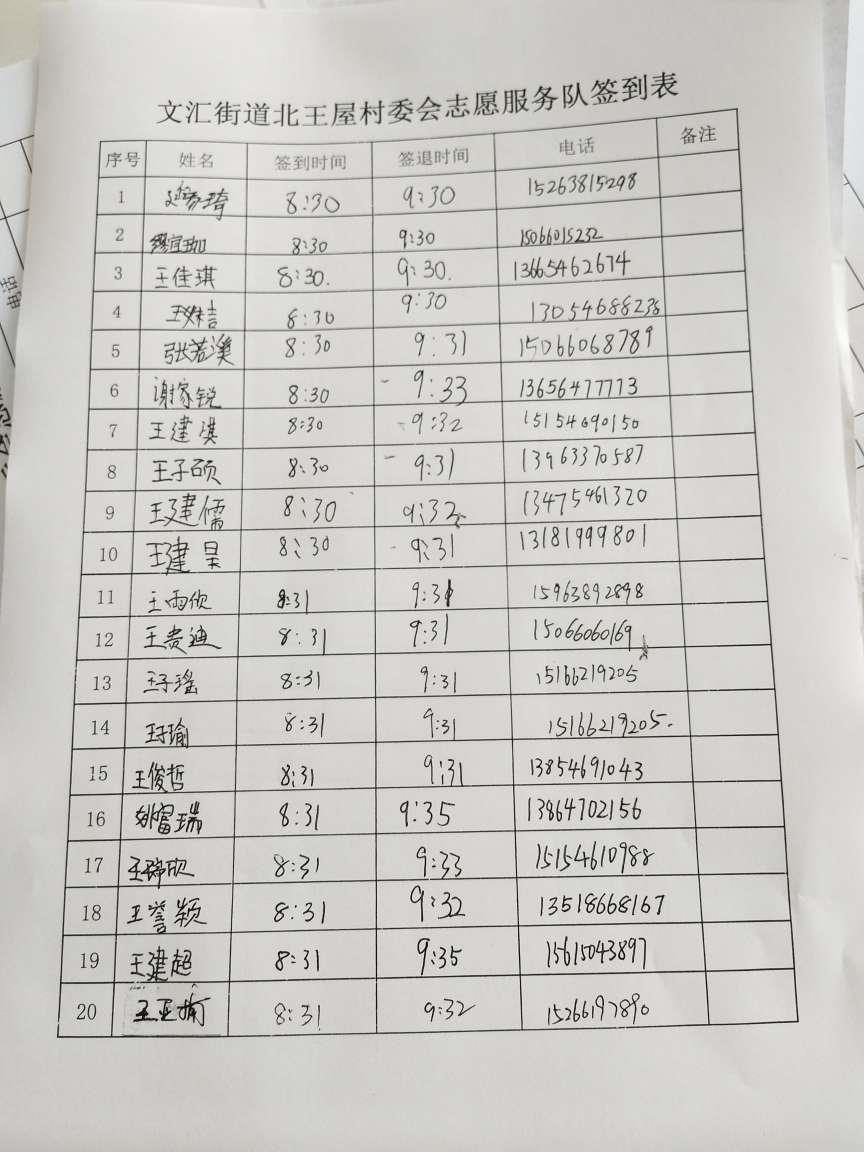 文汇街道北王屋村委会志愿服务队签到表
序号 姓名 签到时间 签退时间 电话 备注
1 赵勇琦 8:30 9:30 15263815298
2 缪宜珈 8:30 9:30 15066015232
3 王佳琪 8:30. 9:30. 13665462674
4 8:30 9:30 13054688238
5 张若溪 8:30 9:31 15066068789
6 谢家锐 8:30 9:33 13656477773
7 王建淇 8:30 9:32 15154690150
8 王子硕 8:30 9:31 13963370587
9 王建儒 8:30 9:32 13475461320
10 王建昊 8:30 9:31 13181999801
11 王雨欣 8:31 9:31 15963892898
12 王贵迪 8:31 9:31 15066060169
13 王子瑶 8:31 9:31 15166219205
14 王子瑜 8:31 9:31 15166219205.
15 王俊哲 8:31 9:31 13854691043
16 富瑞 8:31 9:35 13864702156
17 王瑞欣 8:31 9:33 15154610988
18 王誉颖 8:31 9:32 13518668167
19 王建超 8:31 9:35 15615043897
20 王亚楠 8:31 9:32 15266197890
电话